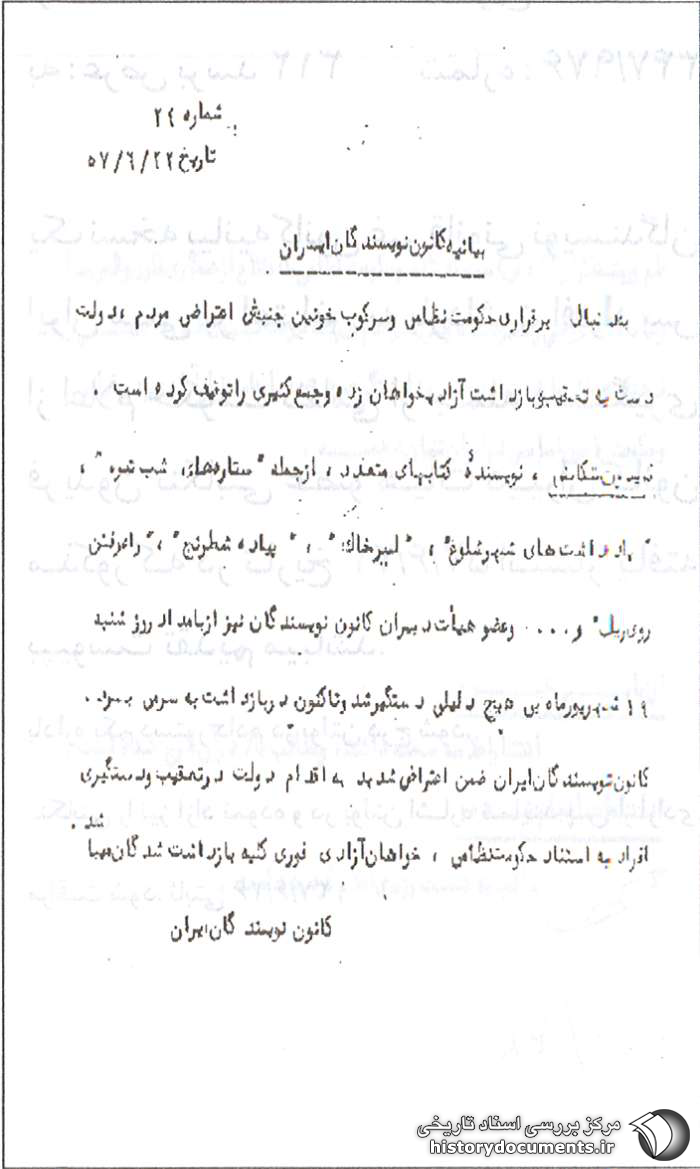 شماره ۲۴
تاریخ ۵۷/۶/۲۲
بیانیه کانون نویسندگان ایران
بدنبال برقراری حکومت نظامی و سرکوب خونین جنبش اعتراضی مردم ، دولت
دست به تعقیب و بازداشت آزادیخواهان زده و جمع کثیری را توقیف کرده است .
فریدون تنکابنی ، نویسندهٔ کتابهای متعدد ، ازجمله "ستاره‌های شب تیره" ،
"یادداشت‌های شهر شلوغ" ، "اسیر خاک" ، "پیاده شطرنج" ، "راه رفتن
روی ریل" و .... و عضو هیأت دبیران کانون نویسندگان نیز از بامداد روز شنبه
۱۹ شهریورماه بی هیچ دلیلی دستگیر شد و تاکنون در بازداشت به سر می برد .
کانون نویسندگان ایران ضمن اعتراض شدید به اقدام دولت در تعقیب و دستگیری
افراد به استناد حکومت نظامی ، خواهان آزادی فوری کلیه بازداشت شدگان میباشد .
کانون نویسندگان ایران
مرکز بررسی اسناد تاریخی
historydocuments.ir